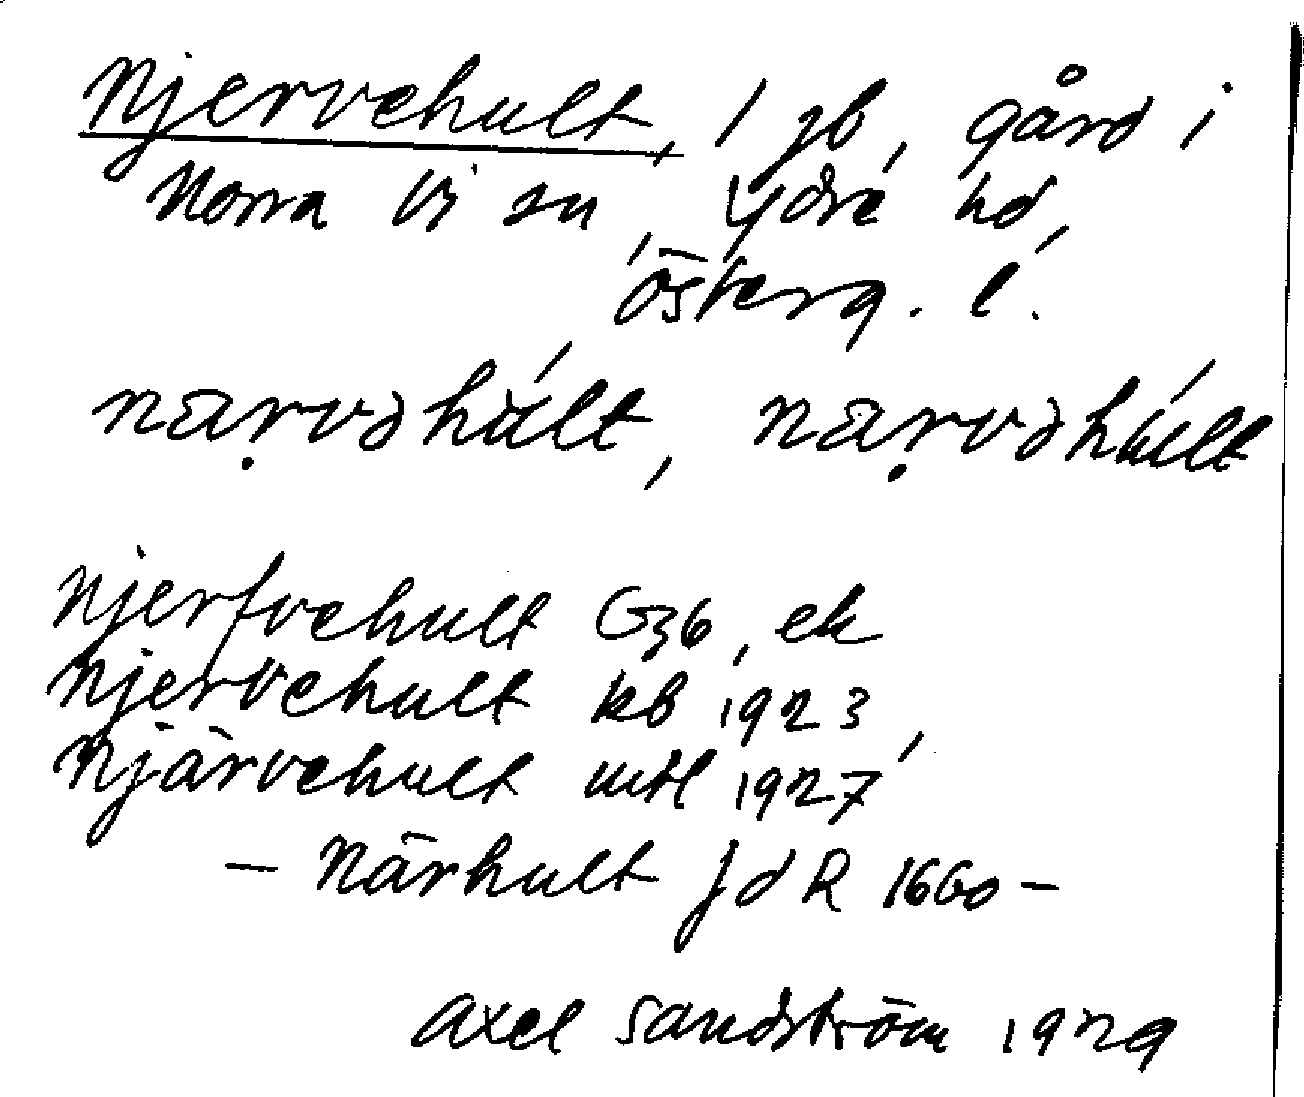 Njervehult, 1 jb, gård i
Norra Vi sn, Ydre hd,
Österg. l.
nærvəhult, nærvəhúlt
Njerfvehult G36, ek
Njervehult kb 1923,
Njärvehult mtl 1927
— Närhult JdR 1660 —
Axel Sandström 1929